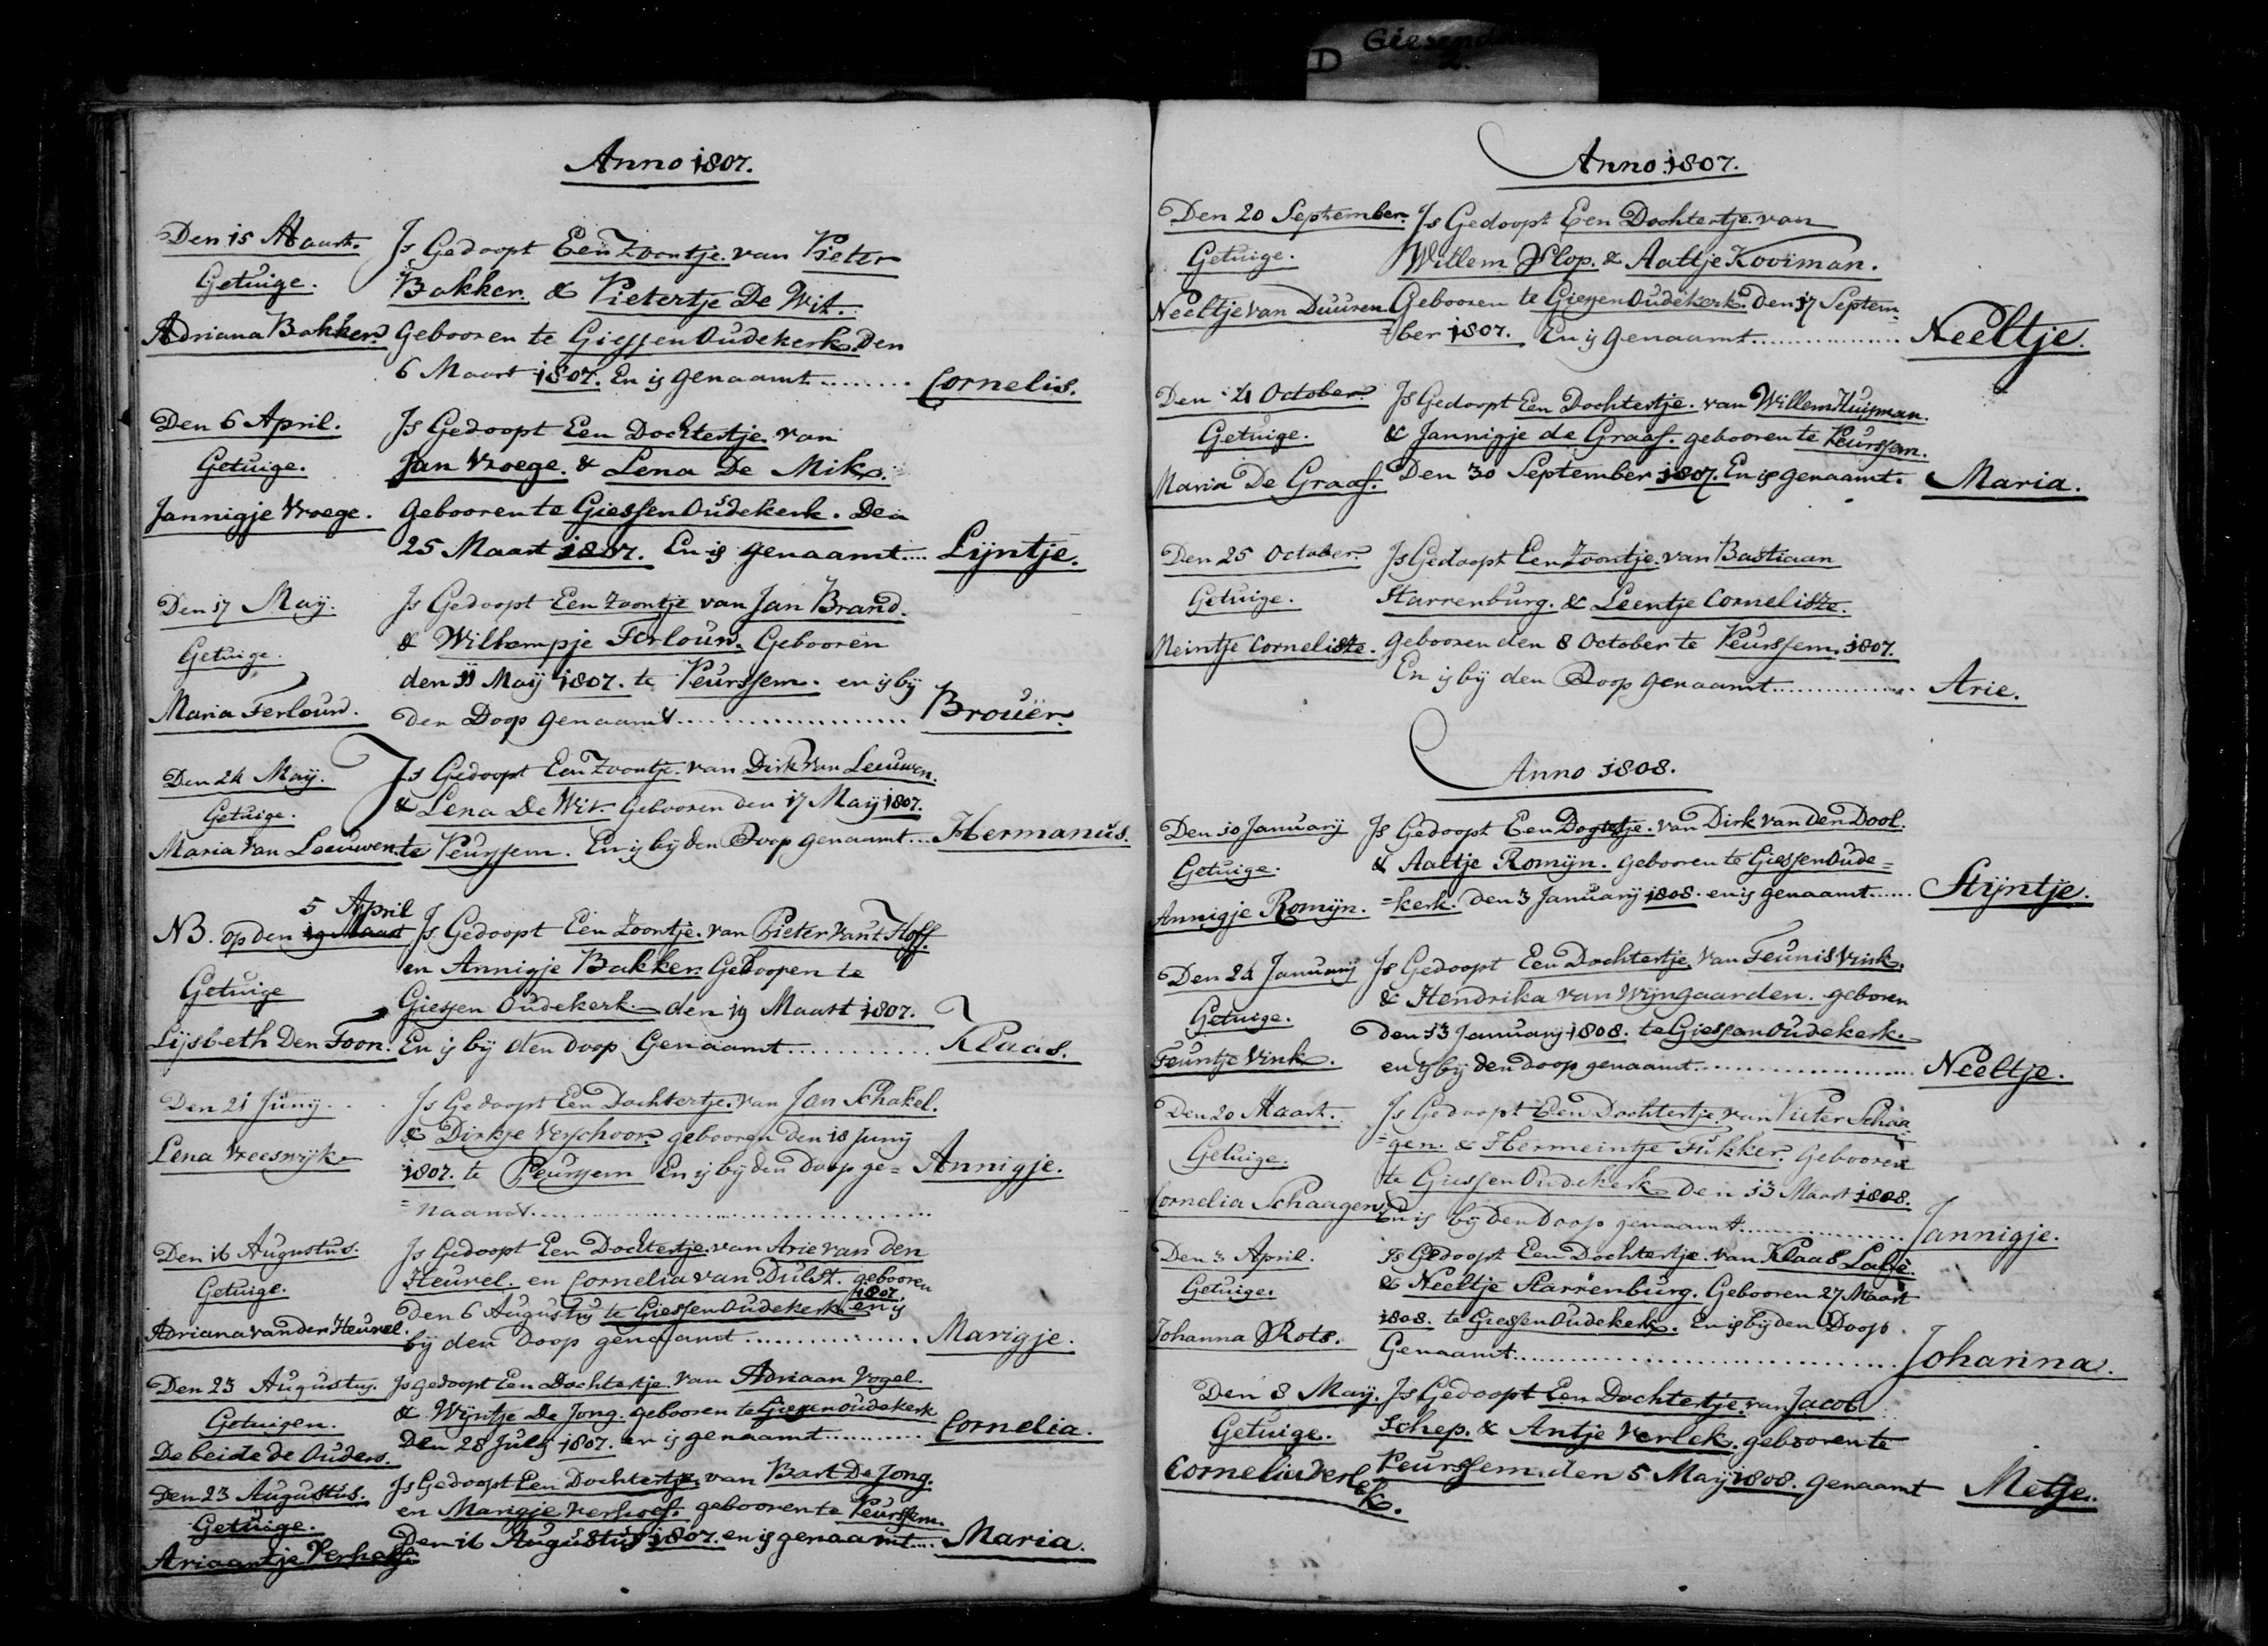 D Giesend
2.
Anno 1807.
Den 15 Maart. Is Gedoopt Een Zoontje van Pieter
Getuige. Bakker. & Pietertje De Wit.
Adriana Bakker. Gebooren te Giessen Oudekerk. Den
6 Maart 1807. En is genaamt ........ Cornelis.
Den 6 April. Is Gedoopt Een Dochtertje van
Getuige. Jan Vroege. & Lena De Mik.
Jannigje Vroege. Gebooren te Giessen Oudekerk. Den
25 Maart 1807. En is genaamt.... Lijntje.
Den 17 Maij. Is Gedoopt Een Zoontje van Jan Brand.
Getuige. & Willempje Terlouw. Gebooren
den 11 Maij 1807. te Peurssem. en is bij
Maria Terlouw. den Doop genaamt .................... Brouër.
Den 24 Maij. Is Gedoopt Een Zoontje van Dirk Van Leeuwen.
Getuige. & Lena De Wit. Gebooren den 17 Maij 1807.
Maria Van Leeuwen. te Peurssem. En is bij den Doop genaamt .... Hermanus.
5 April
NB. op den 19 Maart Is Gedoopt Een Zoontje van Pieter Van't Hoff.
en Annigje Bakker. Gebooren te
Getuige Giessen Oudekerk. den 19 Maart 1807.
Lijsbeth Den Toon. En is bij den doop Genaamt ............ Klaas.
Den 21 Junij. Is Gedoopt Een Dochtertje van Jan Schakel.
& Dirkje Verschoor. gebooren den 18 Junij
Lena Vreeswijk 1807. te Peurssem En is bij den doop ge= Annigje.
=naamt ....................................
Den 16 Augustus. Is Gedoopt Een Dochtertje van Arie van den
Getuige. Heuvel. en Cornelia van Dulst. gebooren
1807.
den 6 Augustus te Giessen Oudekerk. en is
Adriana van den Heuvel. bij den Doop genaamt ................ Marigje.
Den 23 Augustus. Is gedoopt Een Dochtertje van Adriaan Vogel.
Getuigen. & Wijntje De Jong. gebooren te Giessen oudekerk
De beide de Ouders. Den 28 Julij 1807. en is genaamt........... Cornelia.
Den 23 Augustus. Is Gedoopt Een Dochtertje van Bart De Jong.
Getuige. en Marigje Verhoef. gebooren te Peurssem.
Ariaantje Verhoef. Den 16 Augustus 1807. en is genaamt.... Maria.
Anno 1807.
Den 20 September. Is Gedoopt Een Dochtertje van
Getuige. Willem Slop. & Aaltje Kooiman.
Neeltje van Duuren. Gebooren te Giessen Oudekerk. Den 17 Septem
=ber 1807. En is genaamt ................. Neeltje.
Den 4 October. Is Gedoopt Een Dochtertje. van Willem Huisman.
Getuige. & Jannigje de Graaf. gebooren te Peurssem.
Maria De Graaf. Den 30 September 1807. En is genaamt. Maria.
Den 25 October. Is Gedoopt Een Zoontje van Bastiaan
Getuige. Starrenburg. & Leentje Cornelisze.
Meintje Cornelisze. Gebooren den 8 October te Peurssem. 1807.
En is bij den Doop genaamt............... Arie.
Anno 1808.
Den 10 Januarij Is Gedoopt Een Dogtertje. van Dirk van Den Dool.
Getuige. & Aaltje Romijn. Gebooren te Giessen Oude=
Annigje Romijn. =kerk. den 3 Januarij 1808. en is genaamt...... Stijntje.
Den 24 Januarij Is Gedoopt Een Dochtertje. van Teunis Vink.
Getuige. & Hendrika van Wijngaarden. geboren
den 13 Januarij 1808. te Giessen Oudekerk.
Teuntje Vink. en is bij den doop genaamt..................... Neeltje.
Den 20 Maart. Is Gedoopt Een Dochtertje. van Pieter Schaa
Getuige. =gen. & Hermeintje Fukker. Gebooren
te Giessen Oudekerk Den 13 Maart 1808.
Cornelia Schaagen. En is bij Den Doop genaamt ................ Jannigje.
Den 3 April. Is Gedoopt Een Dochtertje. van Klaas
Getuige. & Neeltje Starrenburg. Gebooren 27 Maart
Johanna Rots. 1808. te Giessen Oudekerk. En is bij den Doop
Genaamt................................... Johanna.
Den 8 Maij. Is Gedoopt Een Dochtertje. van Jacob
Getuige. Schep. & Antje Verlek. gebooren te
Cornelia Verlek. Peurssem. den 5 Maij 1808. genaamt Metje.